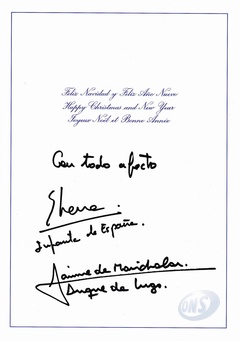 Feliz Navidad y Feliz Año Nuevo
Happy Christmas and New Year
Joyeux Noël et Bonne Année
Con todo afecto
Elena.
Infanta de España.
Jaime de Marichalar.
Duque de Lugo.
DNS